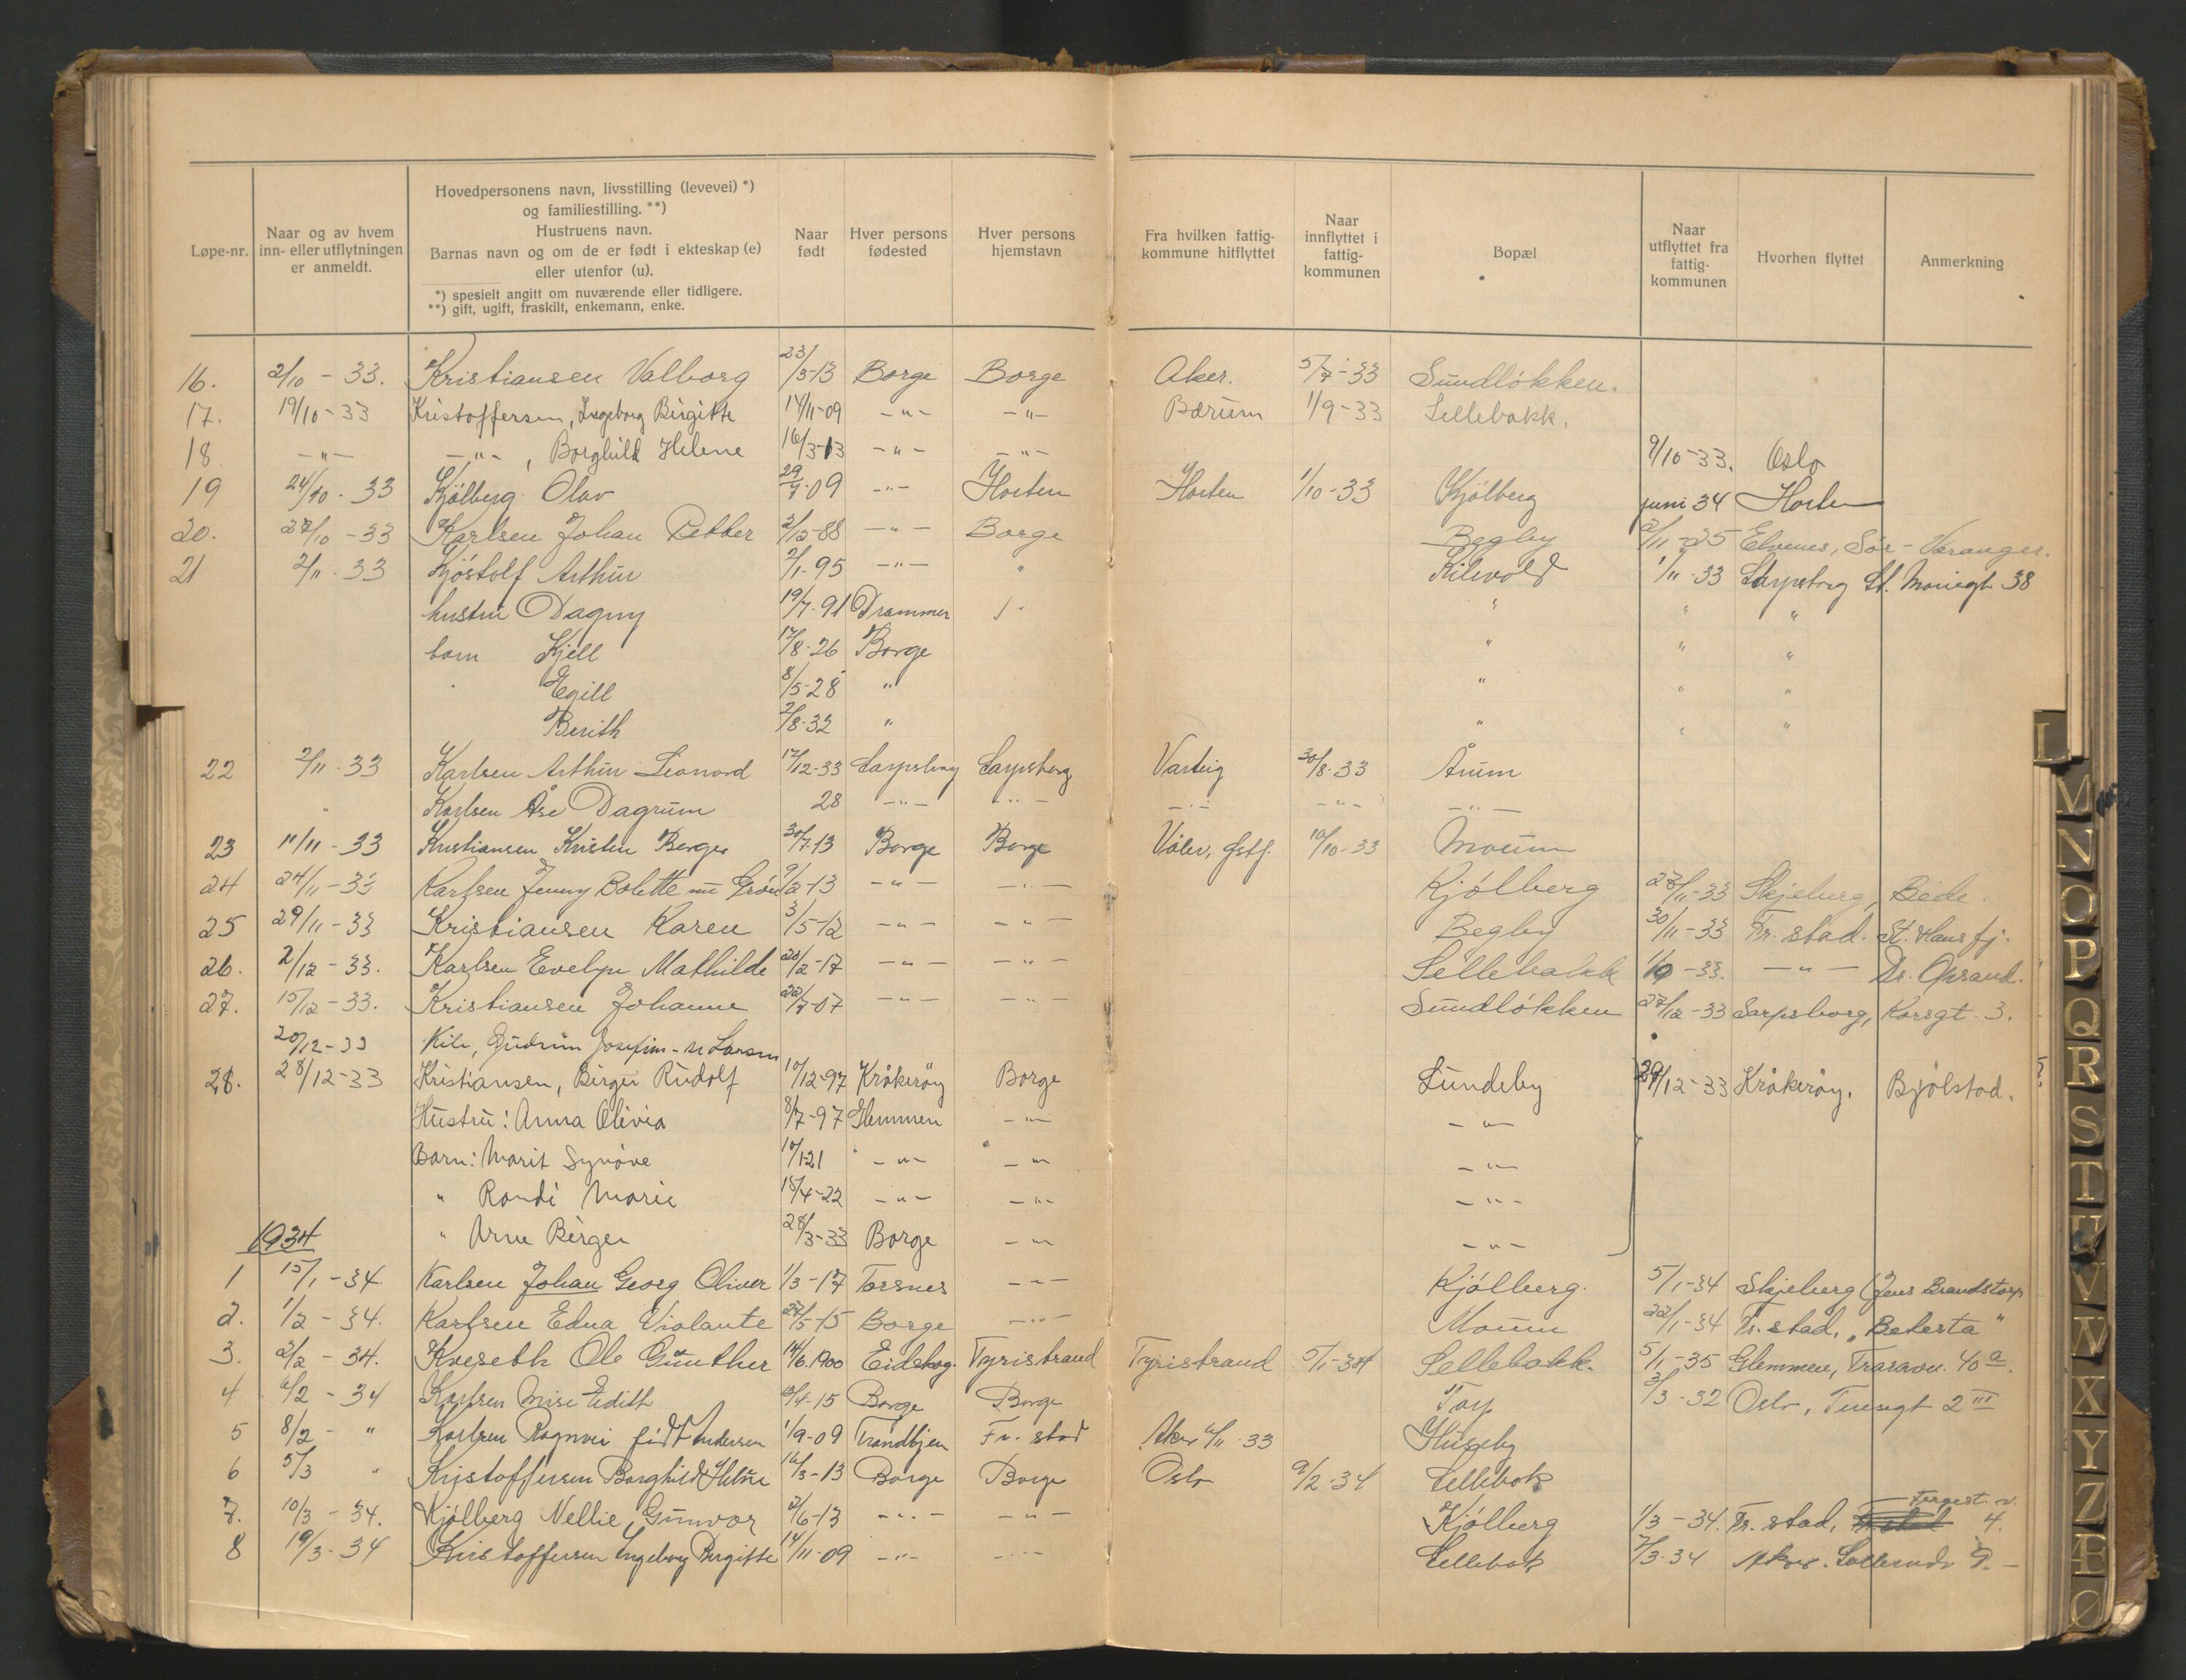 Løpe-nr.
Naar og av hvem
inn- eller utflytningen
er anmeldt.
Hovedpersonens navn, livsstilling (levevei) *)
og familiestilling. **)
Hustruens navn.
Barnas navn og om de er født i ekteskap (e)
eller utenfor (u).
*) spesielt angitt om nuværende eller tidligere.
**) gift, ugift, fraskilt, enkemann, enke.
Naar
født
Hver persons
fødested
Hver persons
hjemstavn
Fra hvilken fattig-
kommune hitflyttet
Naar
innflyttet i
fattig-
kommunen
Bopæl
Naar
utflyttet fra
fattig-
kommunen
Hvorhen flyttet
Anmerkning
16. 2/10 - 33. Kristiansen Valborg 23/3-13 Borge Borge Aker. 5/7-33 Sundløkken.
17. 19/10-33 Kristoffersen, Ingeborg Birgitte 14/11-09 -"- -"- Bærum 1/9-33 Sellebakk.
18 -"- -"-, Borghild Helene 16/3-13 -"- -"- 9/10-33. Oslo
19 24/10 - 33 Kjølberg Olav 29/7-09 -"- Horten Horten 1/10-33 Kjølberg juni 34 Horten
20. 27/10 - 33 Karlsen Johan Petter 2/12-88 -"- Borge Begby 2/11-35 Elvenes, Sør-Varanger.
21 2/11 - 33 Kjøstolf Arthur 2/1-95 -"- " Kilevold 1/11-33 Sarpsborg St. Mariegt 38
hustru Dagny 19/7-91 Drammen " " " "
barn Kjell 17/8-26 Borge " " "
Egill 8/5-28 " " " "
Berith 2/8-32 " " " "
22 2/11 - 33 Karlsen Arthur Leonard 17/12-33 Sarpsborg Sarpsborg Varteig 30/8-33 Årum
" Karlsen Åse Dagrun 28 -"- -"- -"- -"- -"-
23 11/11 - 33 Kristiansen Kristen Berger 30/7-13 Borge Borge Våler, Østf. 10/10-33 Moum
24 24/11 - 33 Karlsen Jenny Bolette 9/2-13 -"- -"- Kjølberg 28/11-33 Skjeberg,
25 29/11 - 33 Kristiansen Karen 3/5-12 -"- -"- Begby 30/11-33 Fr.stad. St. Hansfj.
26. 2/12 - 33. Karlsen Evelyn Mathilde 20/2-17 -"- -"- Sellebakk -"- Dr. Opsand.
27. 15/12 - 33. Kristiansen Johanne 22/7-07 -"- -"- Sundløkken 27/12-33 Sarpsborg, Korsgt. 3.
20/12-33 Kile, Gudrun Josefine
28. 28/12-33 Kristiansen, Birger Rudolf 10/12-97 Kråkerøy Borge Lundeby 29/12-33 Kråkerøy. Bjølstad.
Hustru: Anna Olivia 8/7-97 Glemmen -"- -"-
Barn: Marit Synøve 10/1-21 -"- -"- -"-
" Randi Marie 15/4-22 -"- -"- -"-
" Arne Birger 28/3-33 Borge -"- -"-
1934
1 15/1 - 34. Karlsen Johan Georg Oliver 1/3-17 Torsnes -"- Kjølberg. 5/1-34 Skjeberg (Jens Brandstorp
2. 1/2 - 34. Karlsen Edna Violante 27/5-15 Borge -"- Moum 22/1-34 Fr.stad, "Betesta"
3. 2/2 - 34. Kveseth Ole Günther 14/6 1900 Eidskog. Tyristrand Tyristrand 5/1-34 Sellebakk. 5/1-35 Glemmen, Traraav. 40 a.
4 6/2 - 34 Karlsen Edith 4-15 Borge Borge Torp 3/3-32 Oslo, 2 III
5 8/2 - " Karlsen Ragnvi født Andersen 1/9-09 Trondhjem Fr.stad Aker 6/11-33 Huseby
6 5/3 " Kristoffersen Borghild Helene 16/3-13 Borge Borge Oslo 9/2-34 Sellebak
7. 10/3 - 34. Kjølberg Nellie Gunvor 2/6-13 -"- -"- Kjølberg 1/3-34. Fr.stad, Fergest. v. 4.
8 19/3-34 Kristoffersen Ingeborg Birgitte 14/11-09 -"- -"- Sellebak 7/3-34 Aker. 9.-
L
M
N
O
P
Q
R
S
T
U
V
W
X
Y
Z
Æ
Ø